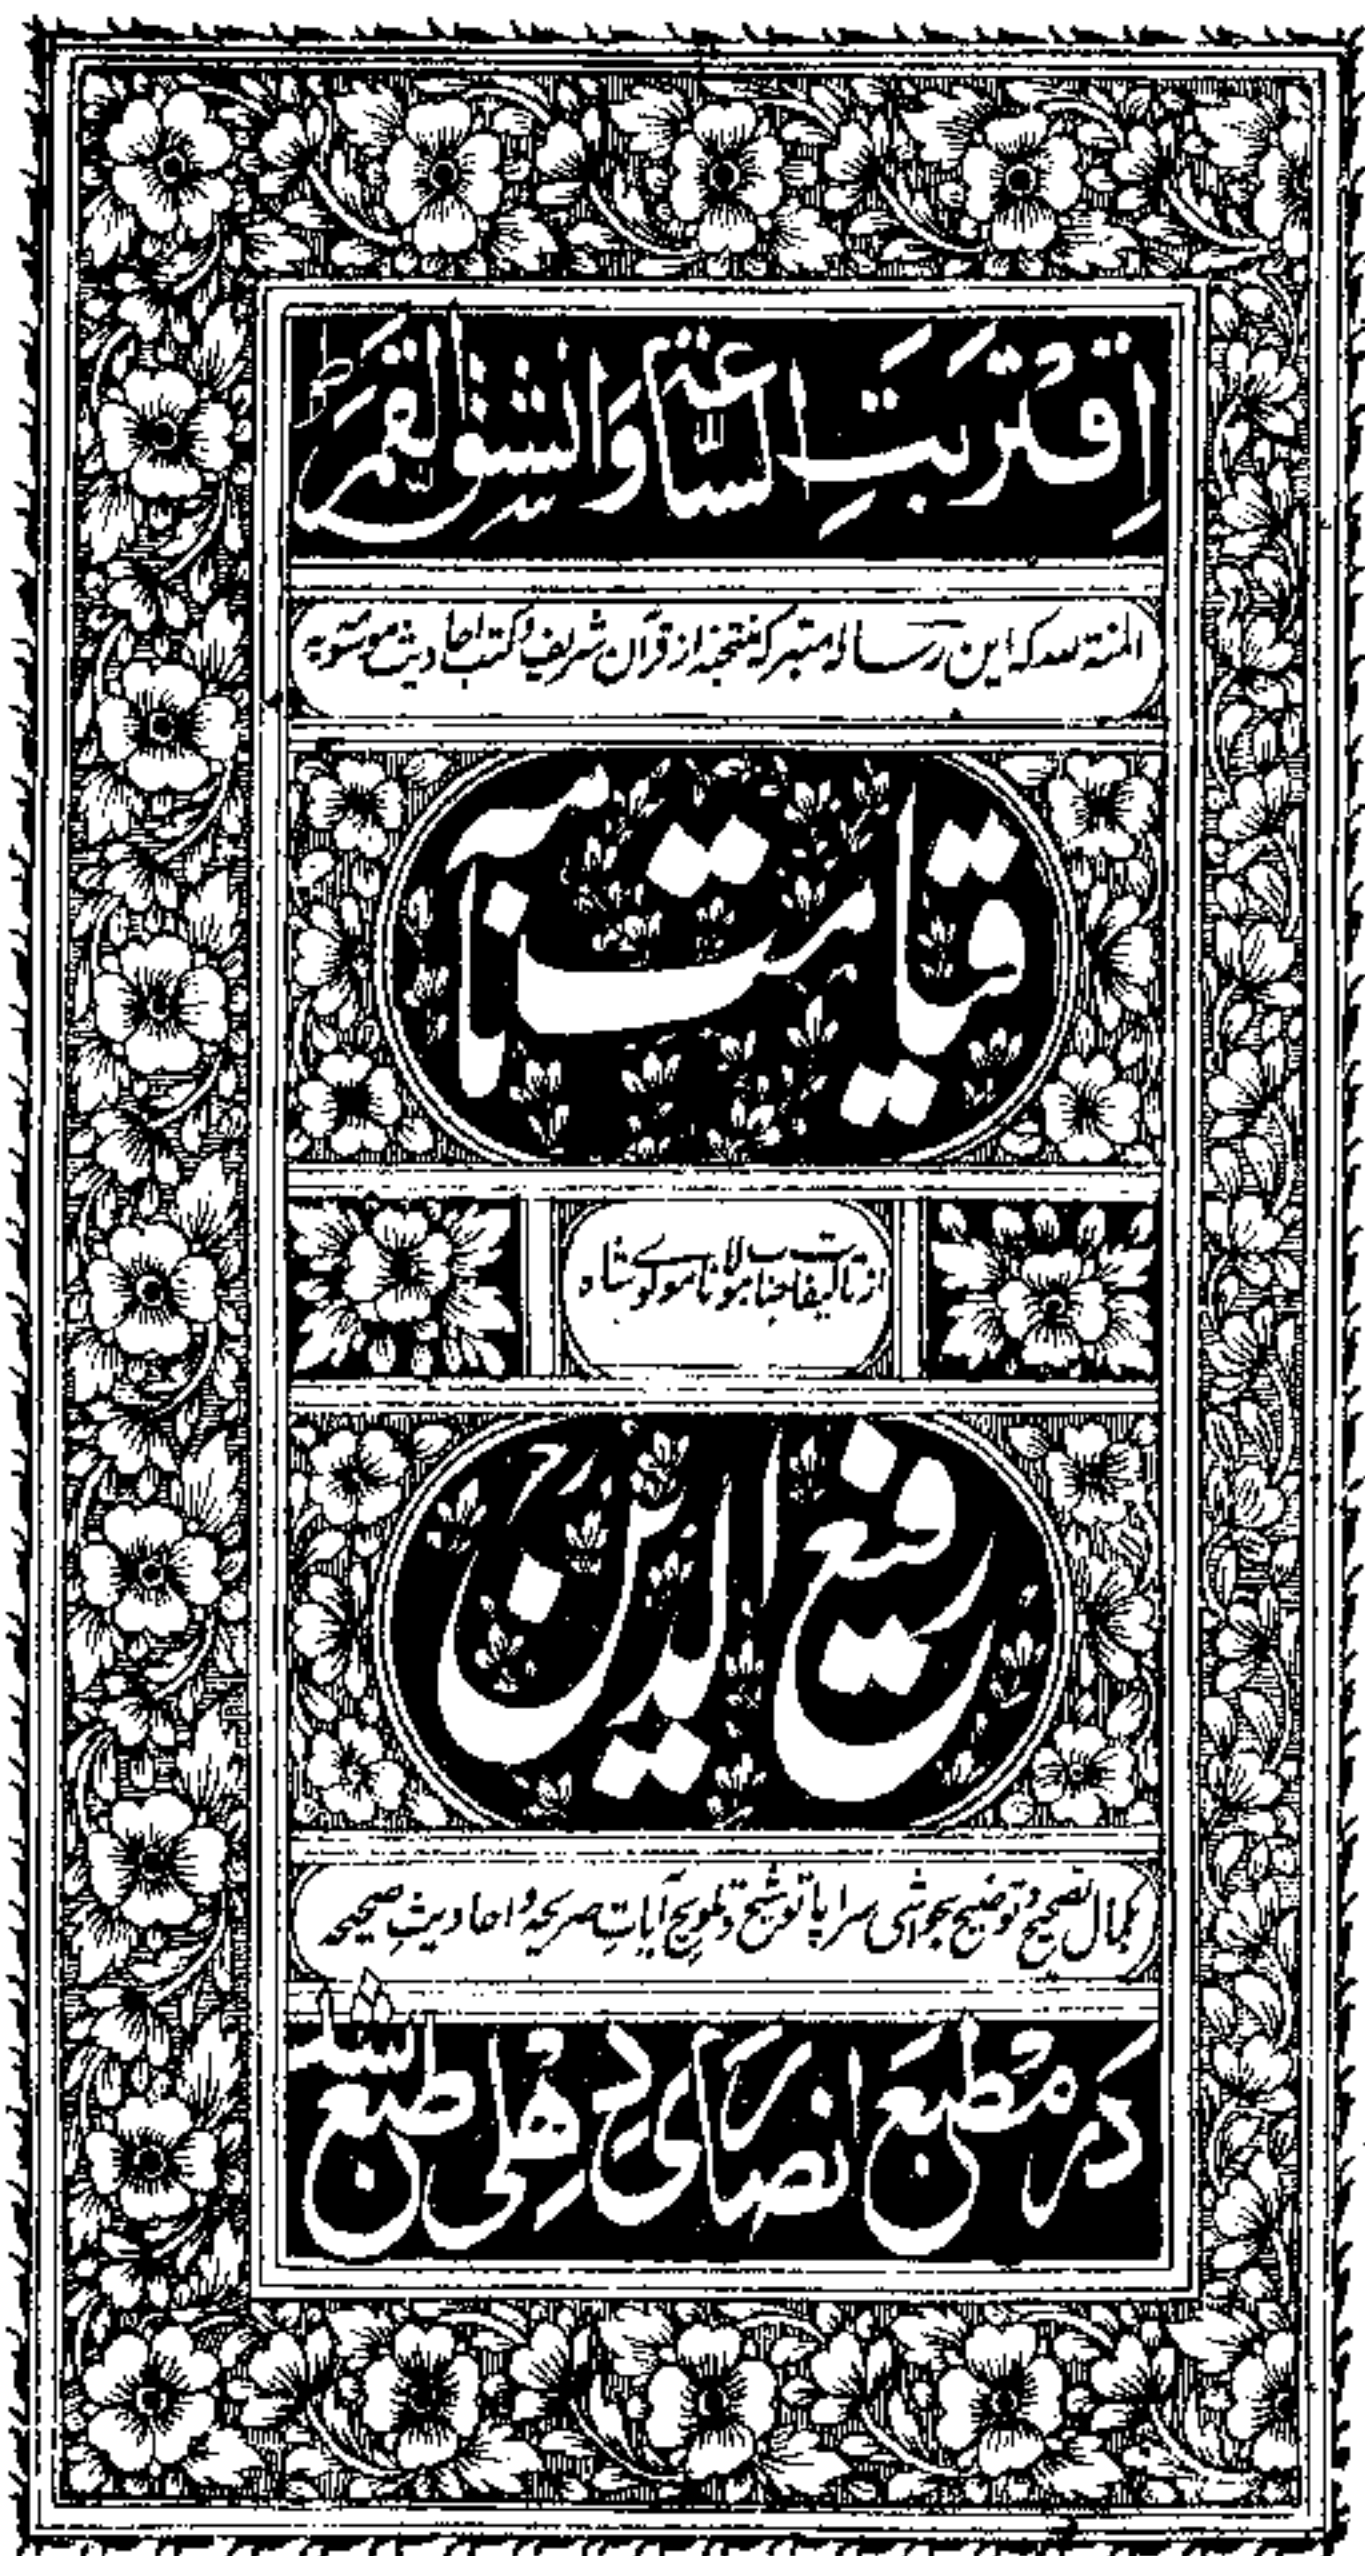 اِقْتَرَبَتِ السَّاعَةُ وَانْشَقَّ الْقَمَرُ
المنة لله که این رساله متبرکه منتخبه از قرآن شریف و کتب احادیث
قیامت نامه
از تالیفات جناب مولانا مولوی شاه
رفیع الدین رح
بکمال تصحیح و توضیح بحواشی سراپا توشیح و تلویح آیات صریحه و احادیث صحیحه
در مطبع انصاری دهلی طبع شد